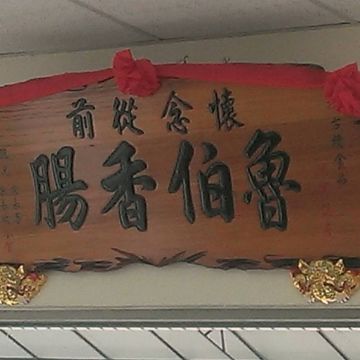 懷念從前
魯伯香腸